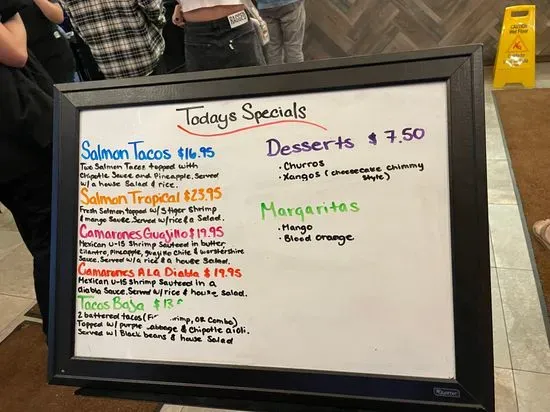 Todays Specials
Salmon Tacos $16.95
Two Salmon Tacos topped with
Chipotle Sauce and Pineapple. Served
w/a house Salad & rice.
Salmon Tropical $23.95
Fresh Salmon topped w/5 tiger shrimp
& mango Sauce. Served w/rice & a Salad.
Camarones Guajillo $19.95
Mexican U-15 Shrimp Sauteed in butter
cilantro, pineapple, guajillo Chile & worstershire
Sauce. Served w/a rice & a house Salad.
Camarones A La Diabla $19.95
Mexican U-15 Shrimp Sauteed in a
diabla Sauce. Served w/rice & house Salad.
Tacos Baja
2 battered tacos OR Combo)
Topped w/ purple & Chipotle aioli.
Served w/ Black beans & house Salad
Desserts $7.50
• Churros
• Xangos (cheesecake chimmy
Style)
Margaritas
• Mango
• Blood orange
CAUTION
Quartet